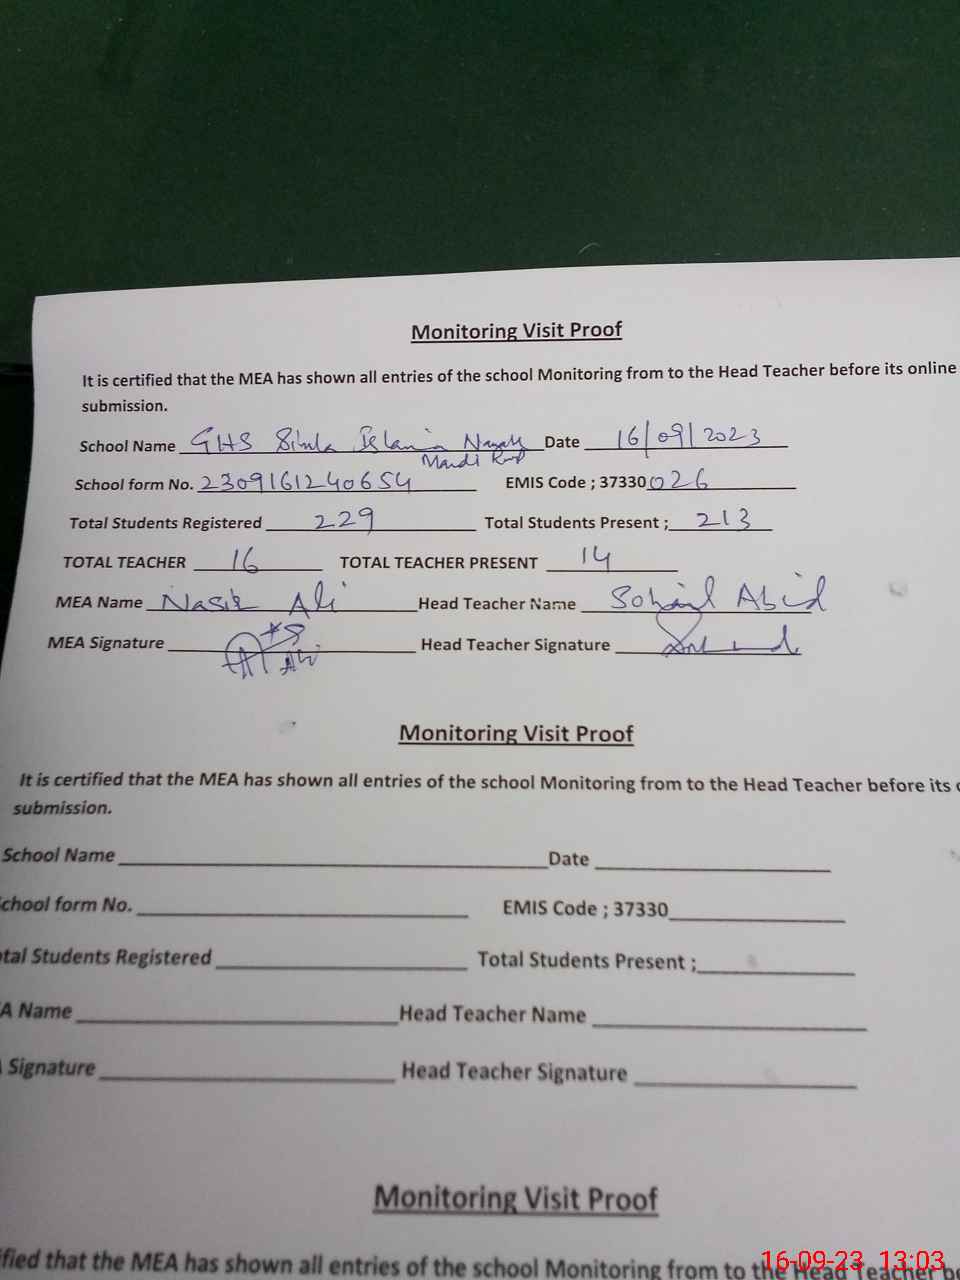 Monitoring Visit Proof
It is certified that the MEA has shown all entries of the school Monitoring from to the Head Teacher before its online
submission.
School Name GHS Simla Islamia Date 16/09/2023
Mandi
School form No. 2309161240654 EMIS Code ; 37330 026
Total Students Registered 229 Total Students Present ; 213
TOTAL TEACHER 16 TOTAL TEACHER PRESENT 14
MEA Name Nasir Ali Head Teacher Name Sohail Abid
MEA Signature Ali Head Teacher Signature
Monitoring Visit Proof
It is certified that the MEA has shown all entries of the school Monitoring from to the Head Teacher before its
submission.
School Name Date
chool form No. EMIS Code ; 37330
tal Students Registered Total Students Present ;
A Name Head Teacher Name
Signature Head Teacher Signature
Monitoring Visit Proof
fied that the MEA has shown all entries of the school Monitoring from to the Head Teacher be
16-09-23 13:03